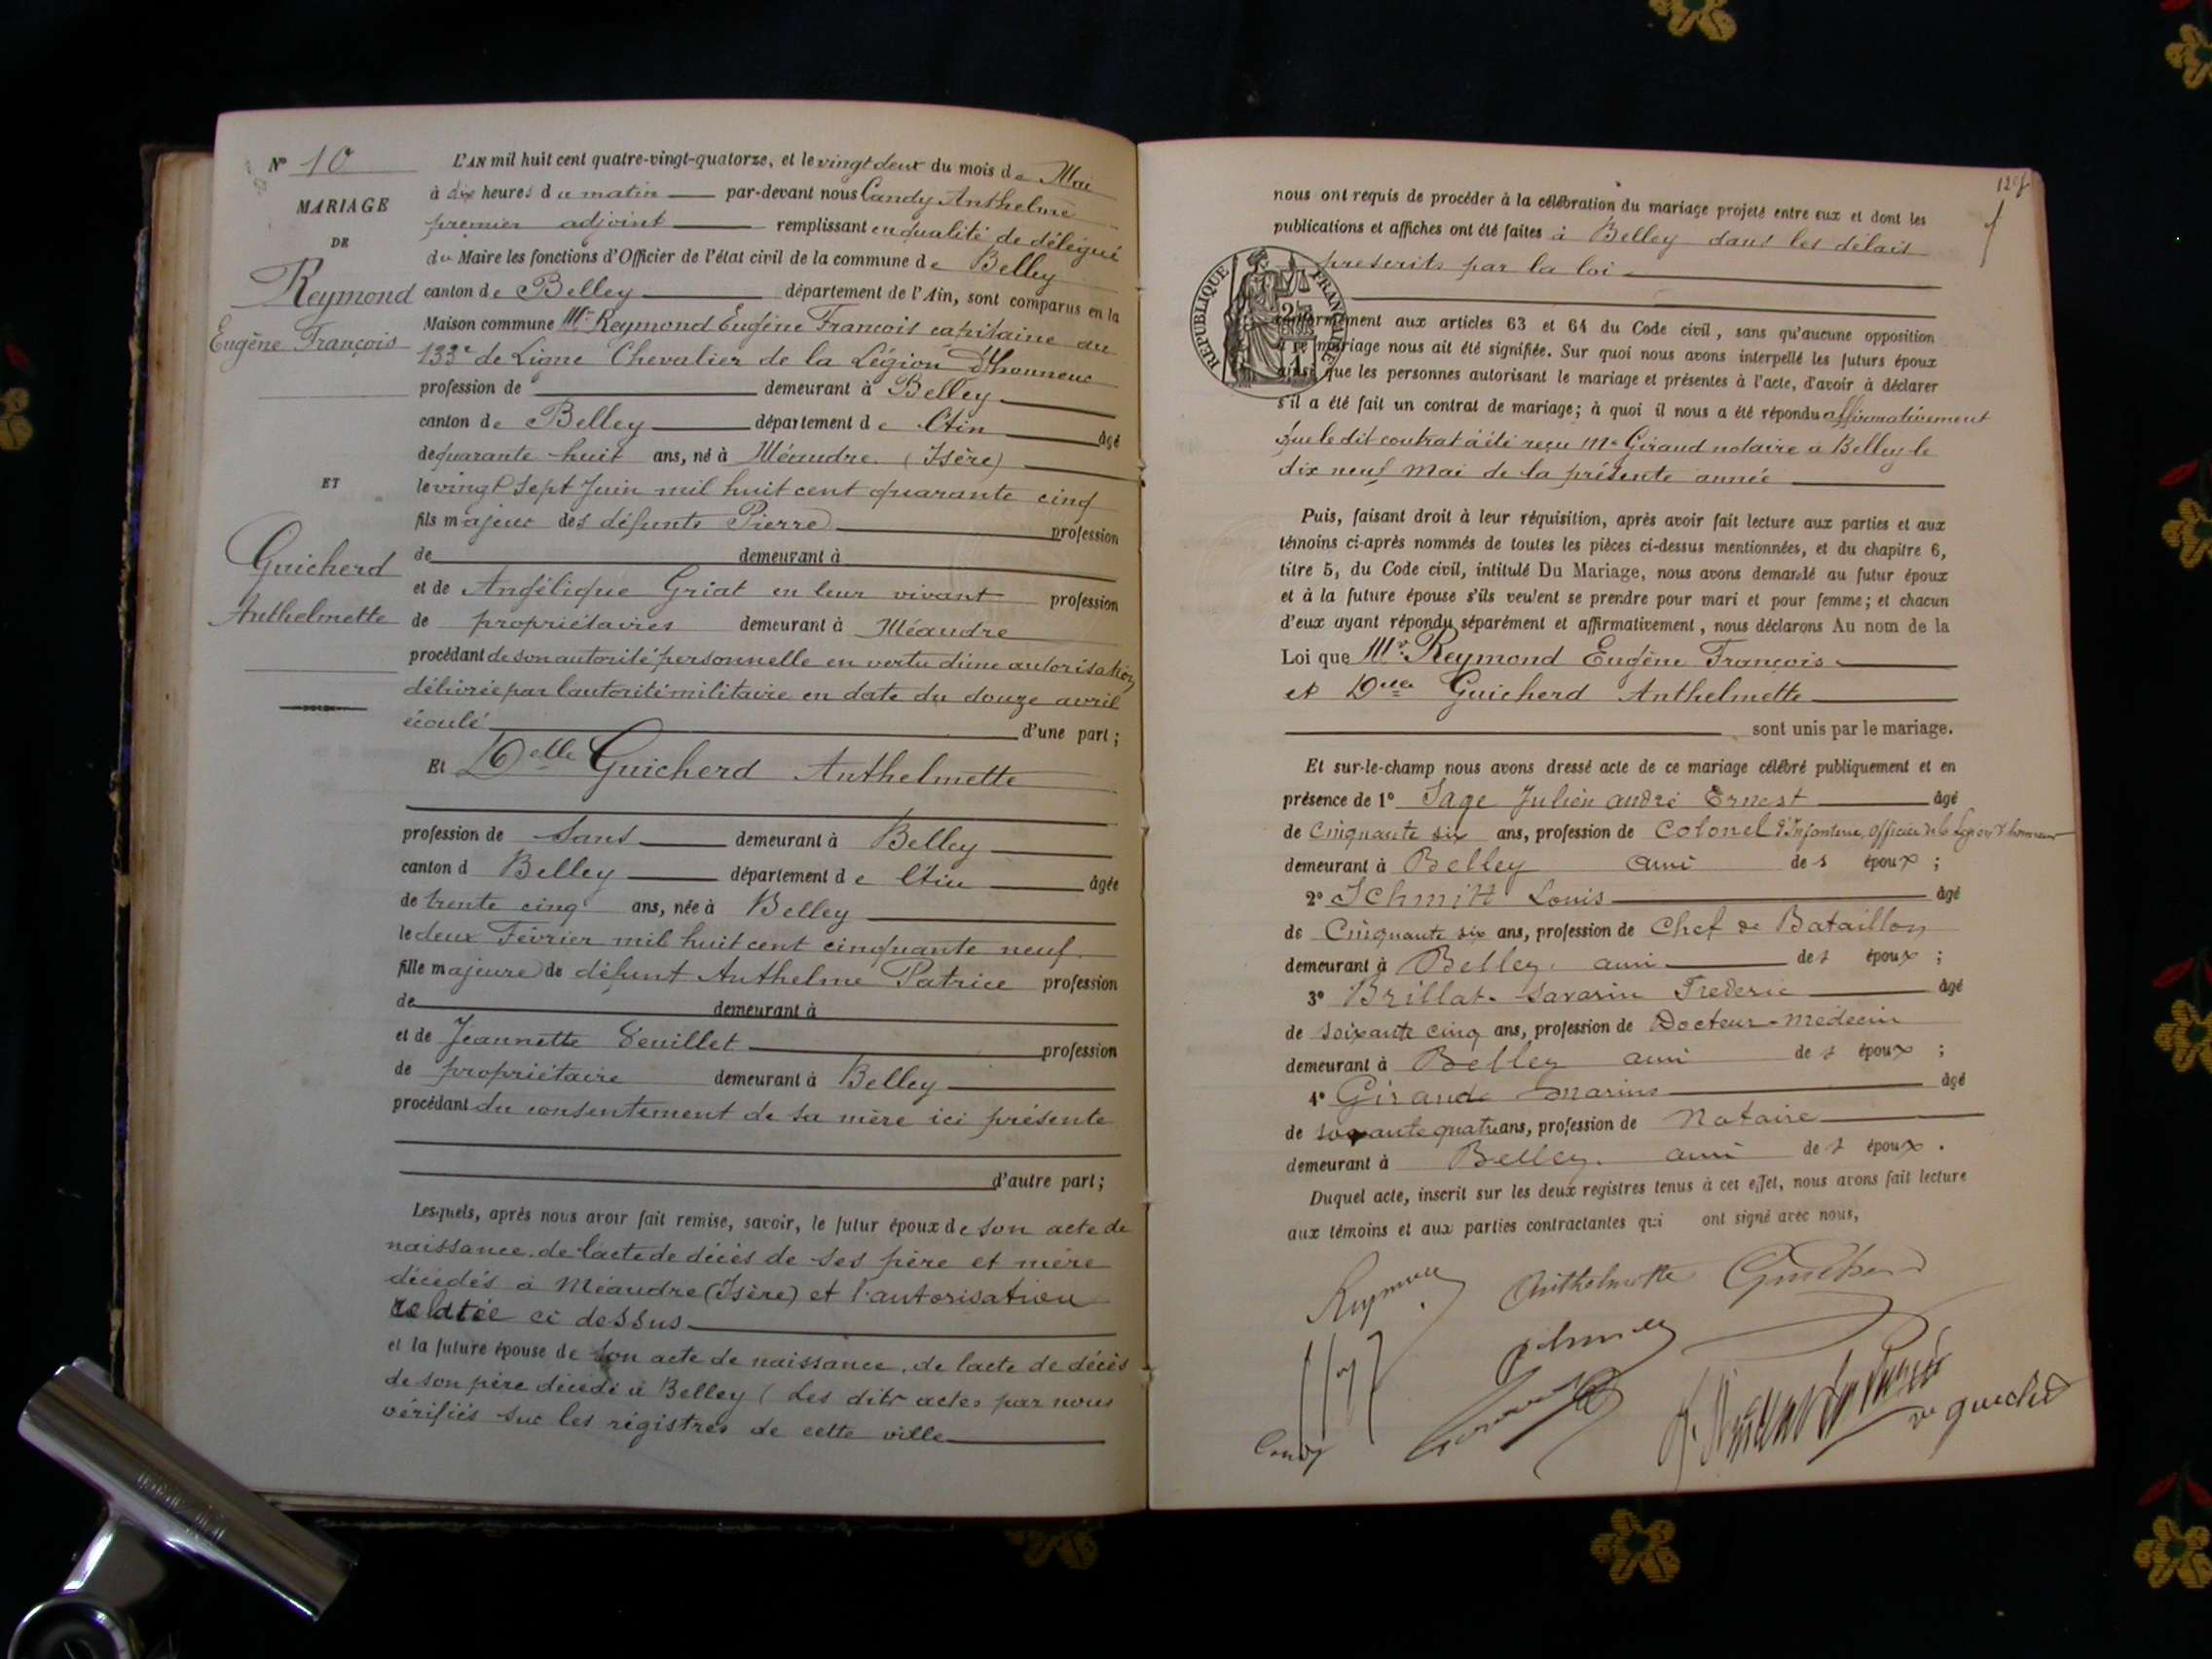 N° 10
MARIAGE
DE
Reymond
Eugène François
ET
Guicherd
Anthelmette
L'AN mil huit cent quatre-vingt-quatorze, et le vingt deux du mois de Mai
à dix heures du matin par-devant nous Candy Anthelme
premier adjoint remplissant en qualité de délégué
du Maire les fonctions d'Officier de l'état civil de la commune de Belley
canton de Belley département de l'Ain, sont comparus en la
Maison commune Mr Reymond Eugène François capitaine au
133e de Ligne Chevalier de la Légion d'honneur
profession de demeurant à Belley
canton de Belley département de l'Ain âgé
de quarante huit ans, né à Méaudre (Isère)
le vingt sept Juin mil huit cent quarante cinq
fils majeur des défunts Pierre profession
de demeurant à
et de Angélique Griat en leur vivant profession
de propriétaires demeurant à Méaudre
procédant de son autorité personnelle en vertu d'une autorisation
délivrée par l'autorité militaire en date du douze avril
écoulé d'une part;
Et Delle Guicherd Anthelmette
profession de Sans demeurant à Belley
canton d Belley département de l'Ain âgée
de trente cinq ans, née à Belley
le deux Février mil huit cent cinquante neuf
fille majeure de défunt Anthelme Patrice profession
de demeurant à
et de Jeannette profession
de propriétaire demeurant à Belley
procédant du consentement de sa mère ici présente
d'autre part;
Lesquels, après nous avoir fait remise, savoir, le futur époux de son acte de
naissance, de l'acte de décès de ses père et mère
décédés à Méaudre (Isère) et l'autorisation
relatée ci dessus
et la future épouse de son acte de naissance, de l'acte de décès
de son père décédé à Belley (Les dits actes par nous
vérifiés sur les régistres de cette ville
nous ont requis de procéder à la célébration du mariage projeté entre eux et dont les
publications et affiches ont été faites à Belley dans les délais
prescrits par la loi
RÉPUBLIQUE FRANÇAISE
conformément aux articles 63 et 64 du Code civil, sans qu'aucune opposition
à ce mariage nous ait été signifiée. Sur quoi nous avons interpellé les futurs époux
ainsi que les personnes autorisant le mariage et présentes à l'acte, d'avoir à déclarer
s'il a été fait un contrat de mariage; à quoi il nous a été répondu affirmativement
que le dit contrat à été reçu Me Giraud notaire à Belley le
dix neuf Mai de la présente année
Puis, faisant droit à leur réquisition, après avoir fait lecture aux parties et aux
témoins ci-après nommés de toutes les pièces ci-dessus mentionnées, et du chapitre 6,
titre 5, du Code civil, intitulé Du Mariage, nous avons demandé au futur époux
et à la future épouse s'ils veulent se prendre pour mari et pour femme; et chacun
d'eux ayant répondu séparément et affirmativement, nous déclarons Au nom de la
Loi que Mr Reymond Eugène François
et Delle Guicherd Anthelmette
sont unis par le mariage.
Et sur-le-champ nous avons dressé acte de ce mariage célébré publiquement et en
présence de 1° Sage Julien andré Ernest âgé
de Cinquante six ans, profession de Colonel d'Infanterie, Officier de la Légion d'honneur
demeurant à Belley ami des époux;
2° Schmitt Louis âgé
de Cinquante six ans, profession de Chef de Bataillon
demeurant à Belley. ami des époux;
3° Brillat-Savarin Frederic âgé
de soixante cinq ans, profession de Docteur-Médecin
demeurant à Belley ami des époux;
4° Giraud Marius âgé
de soixante quatre ans, profession de Notaire
demeurant à Belley. ami des époux.
Duquel acte, inscrit sur les deux registres tenus à cet effet, nous avons fait lecture
aux témoins et aux parties contractantes qui ont signé avec nous,
Reymond Anthelmette Guicherd
Candy
Ve guicherd